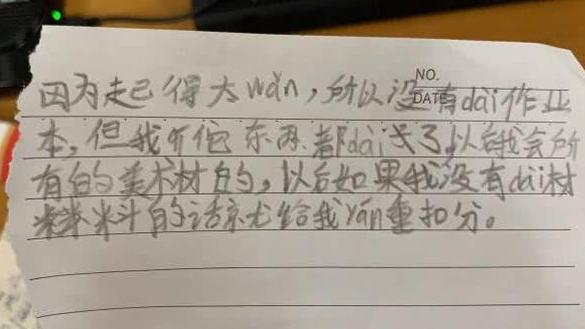 NO.
DATE
因为走己得大wǎn，所以没有dài作业
本，但我所他东西都dài齐了以后我会所
有的美术材的，以后如果我没有dài材
料的话京尤给我yán重扣分。